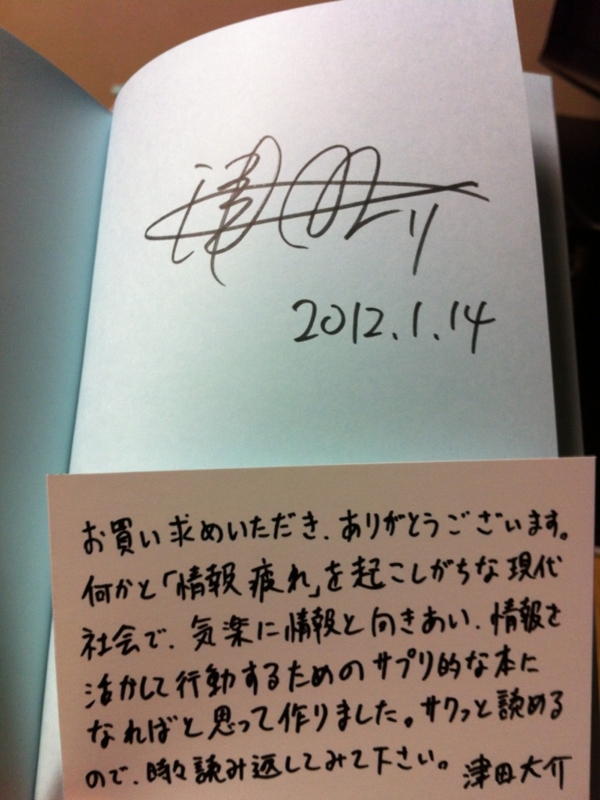 2012.1.14
お買い求めいただき、ありがとうございます。
何かと「情報疲れ」を起こしがちな現代
社会で、気楽に情報と向きあい、情報を
活かして行動するためのサプリ的な本に
なればと思って作りました。サクっと読める
ので、時々読み返してみて下さい。 津田大介